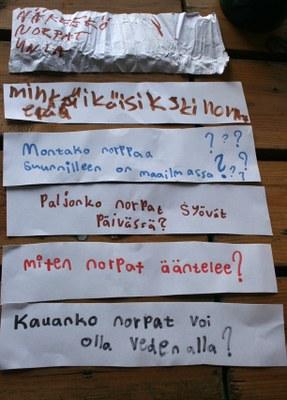 NÄKEEKÖ
NORPAT
UNIA
minkä ikäisiksi norpat
elää
Montako norppaa ? ? ?
suunnilleen on maailmassa ? ? ? ?
Paljonko norpat syövät
päivässä?
miten norpat ääntelee?
Kauanko norpat voi
olla veden alla?